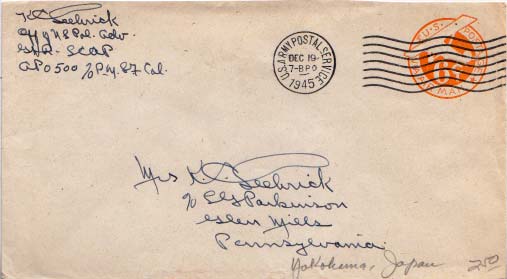 K.C. Seehrick
Off of U S Pol. Adv.
GHQ - SCAP
APO 500 c/o P.M. S7 Cal.
U.S. ARMY POSTAL SERVICE
DEC 19
7-BPO
1945
U.S. POSTAGE
6¢
AIR MAIL
Mrs K.C. Seehrick
c/o E G Parkinson
Glen Mills
Pennsylvania
Yokohama, Japan
2.50